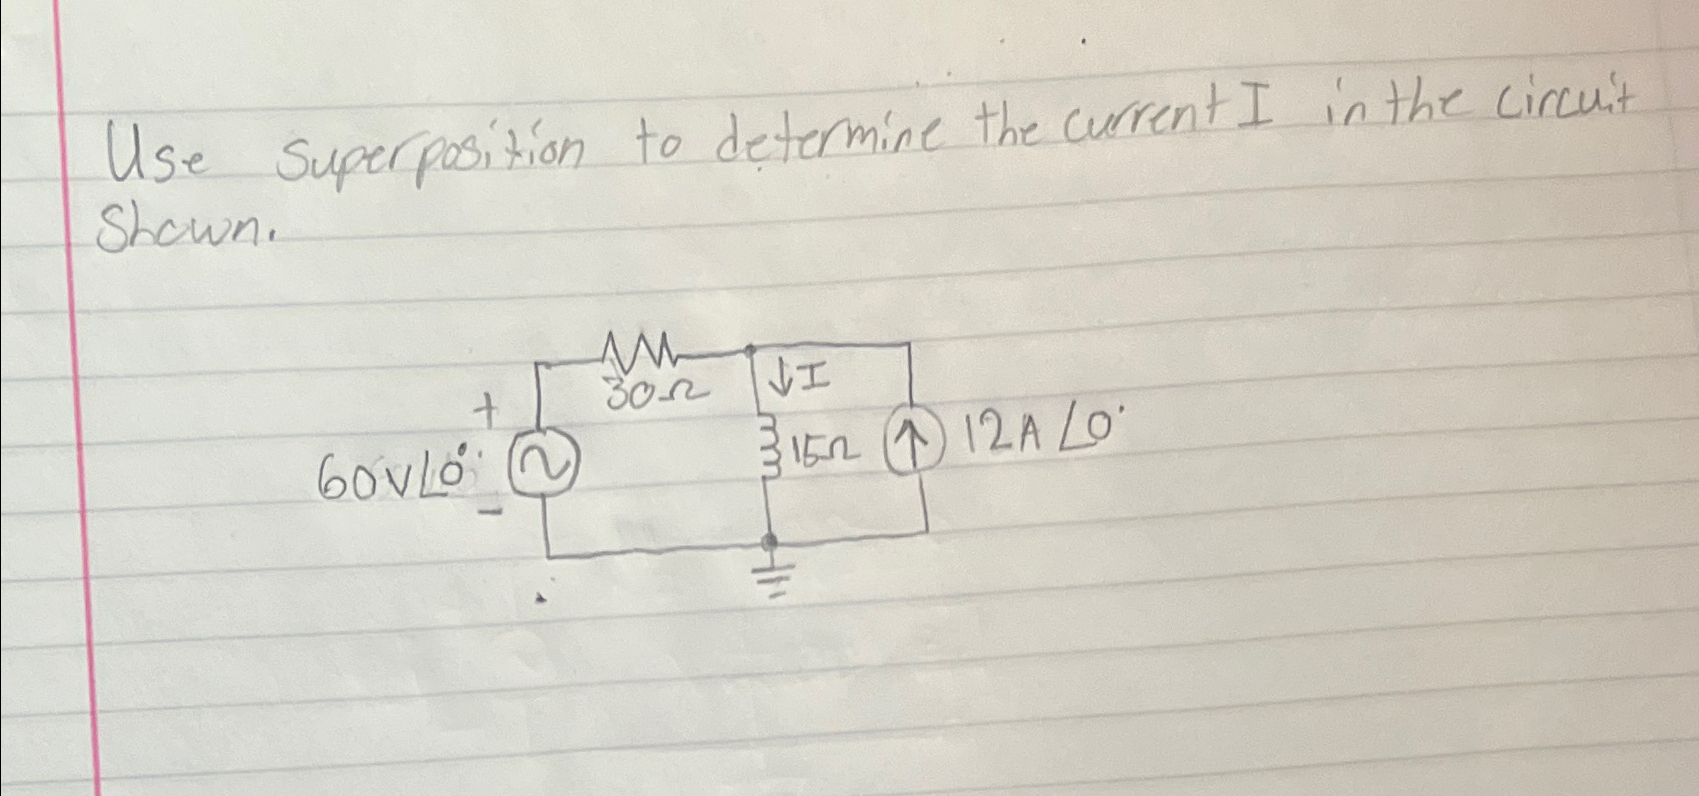 Use superposition to determine the current I in the circuit
Shown.
30Ω
↓I
+
60V∠0°
15Ω
12A∠0°
-